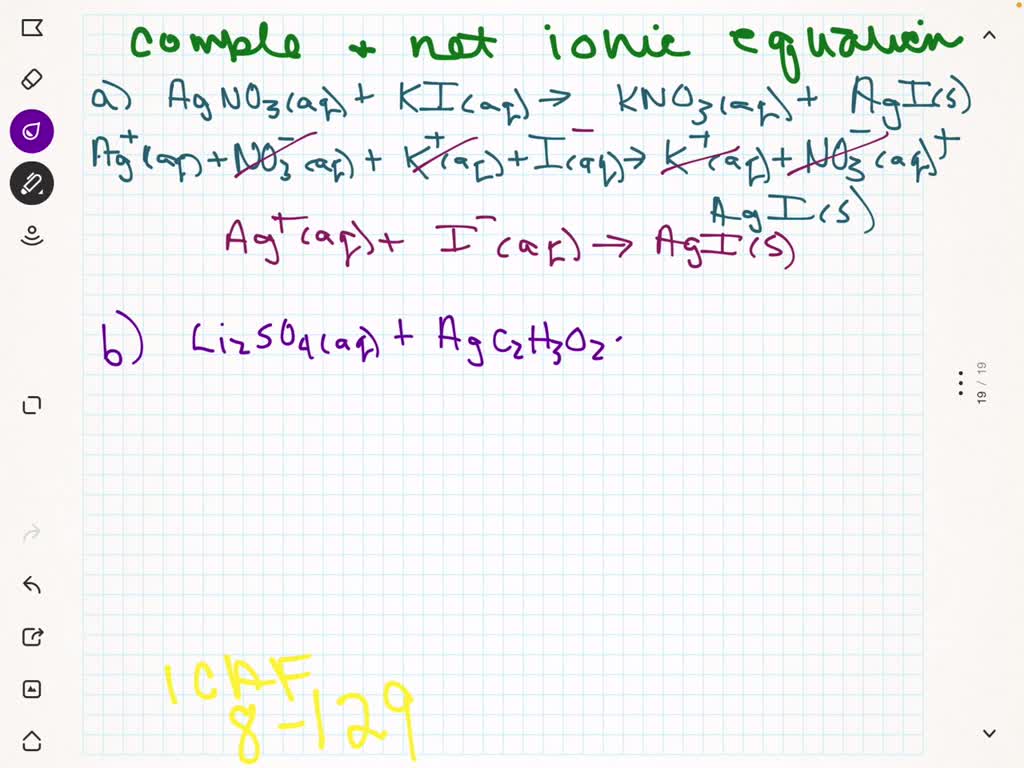 comple + net ionic equation
a) AgNO3(aq) + KI(aq) → KNO3(aq) + AgI(s)
Ag+(aq) + NO3-(aq) + K+(aq) + I-(aq) → K+(aq) + NO3-(aq) +
AgI(s)
Ag+(aq) + I-(aq) → AgI(s)
b) Li2SO4(aq) + AgC2H3O2
19 / 19
8-129